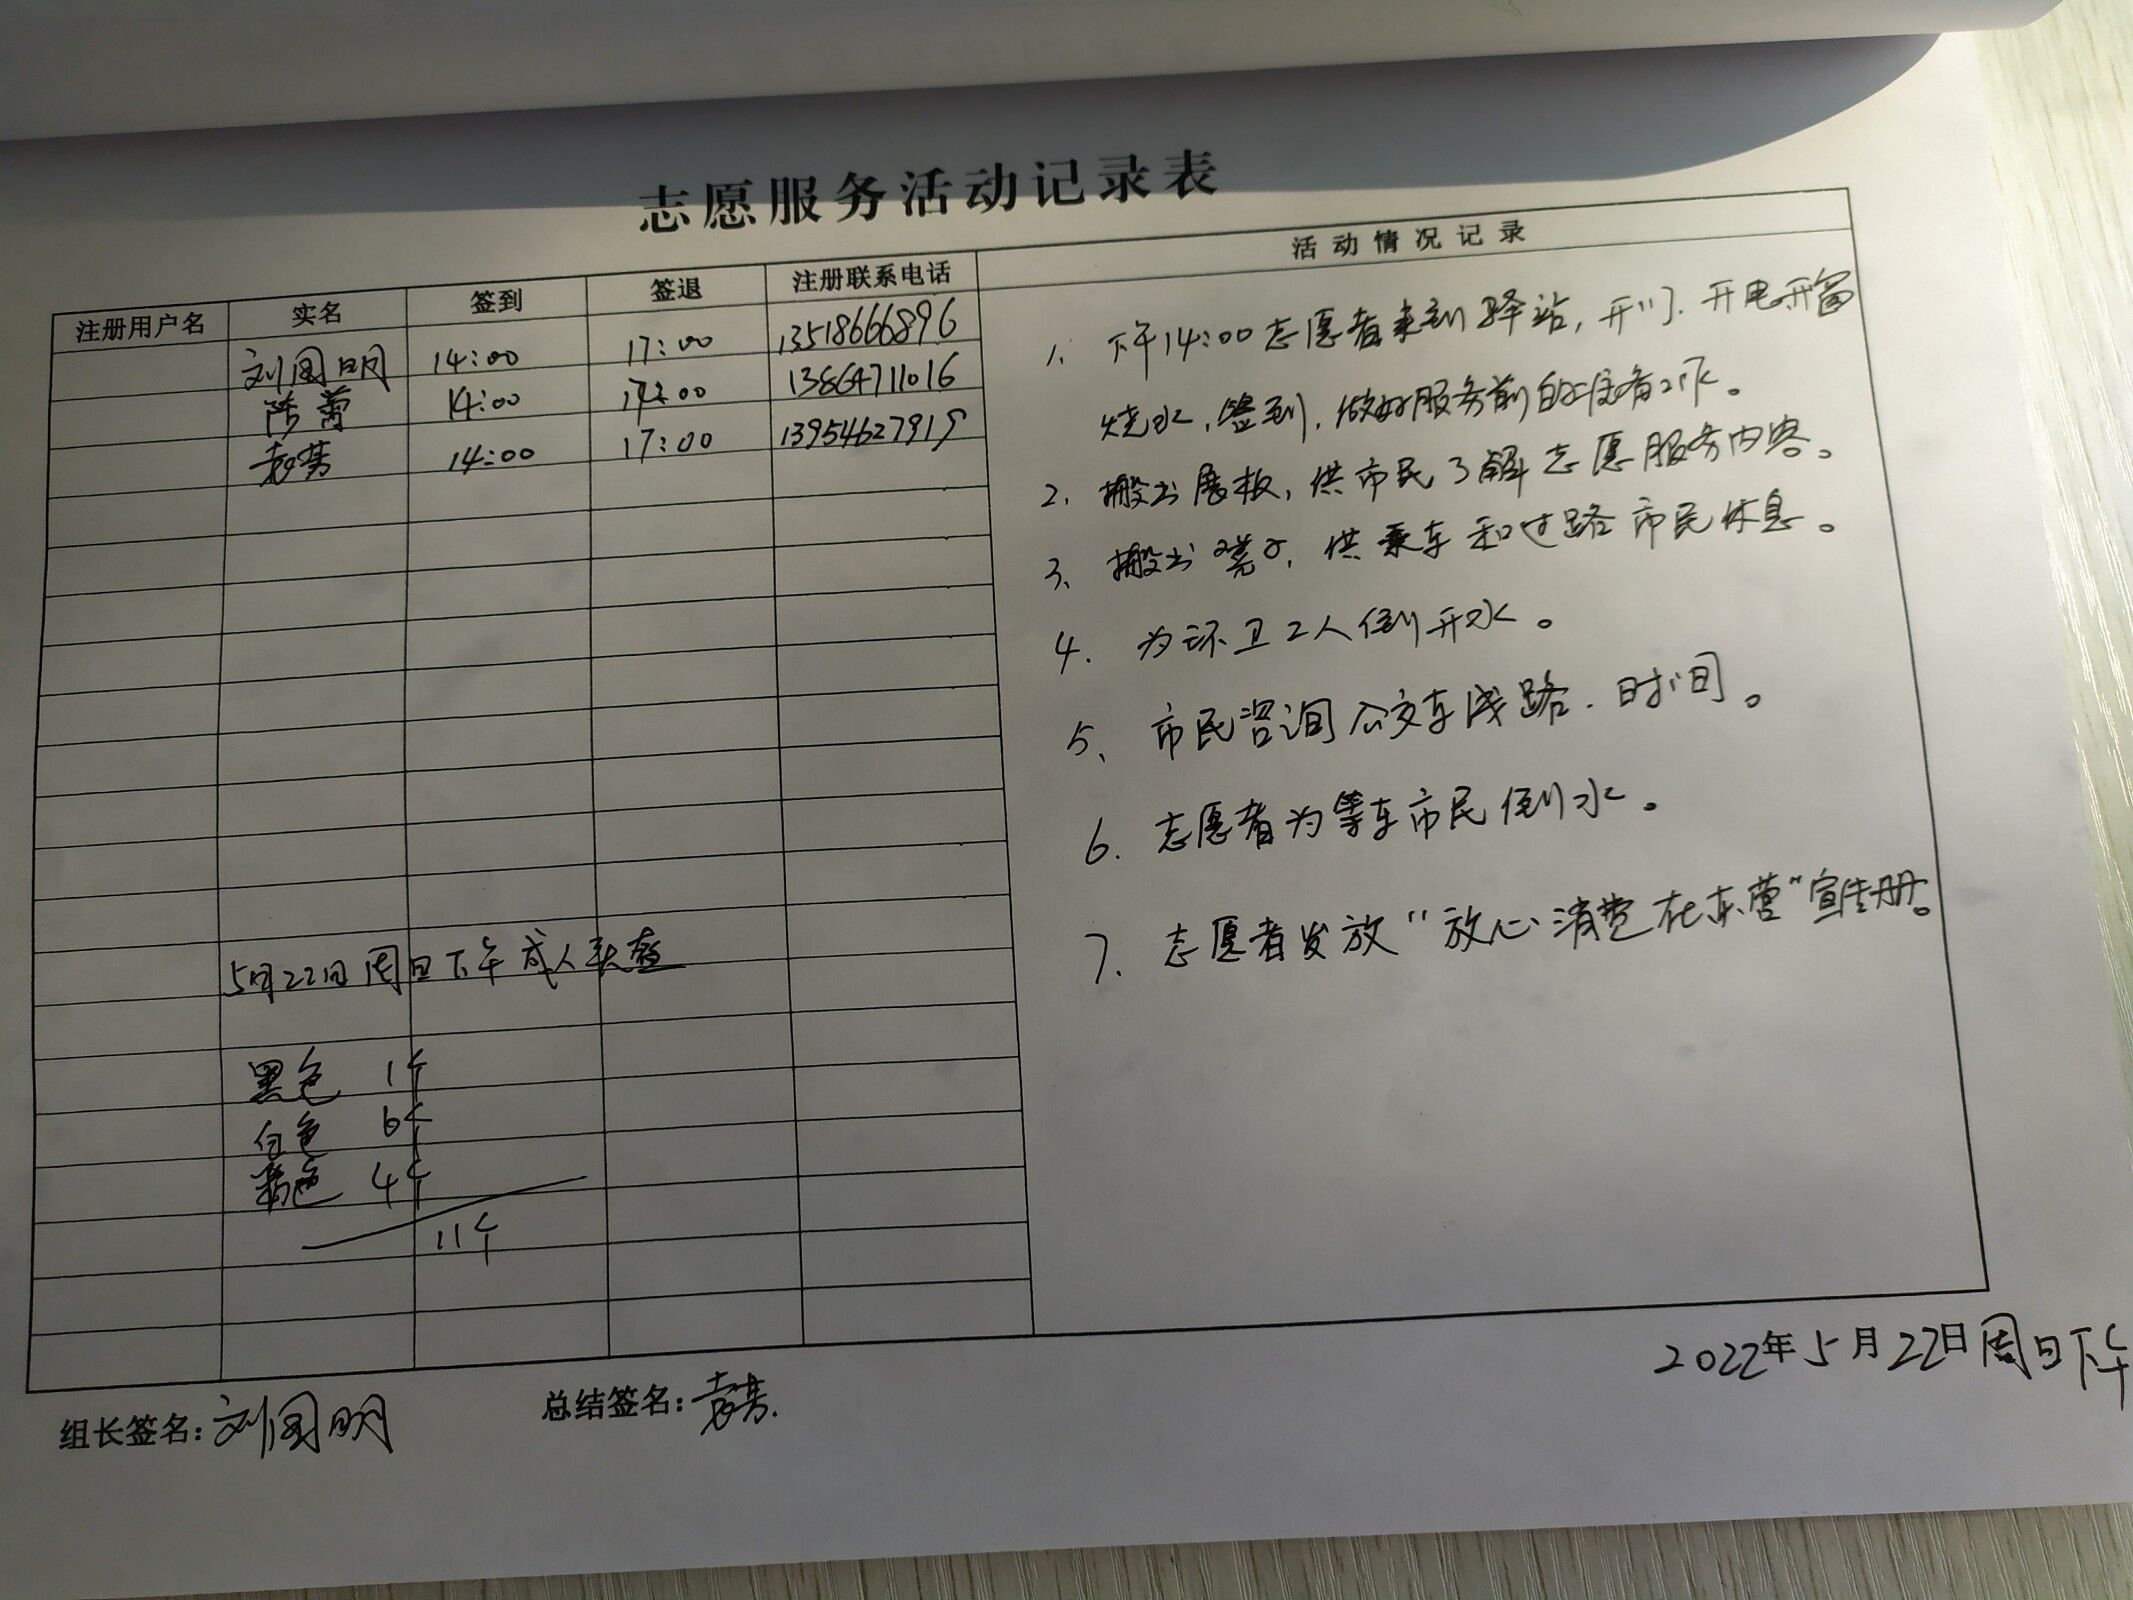 志愿服务活动记录表
注册用户名 实名 签到 签退 注册联系电话 活动情况记录
刘国明 14:00 17:00 13518666896
陈蕾 14:00 17:00 13864711016
袁芳 14:00 17:00 13954627919
1、下午14:00志愿者来到驿站,开门、开电开窗
烧水,签到,做好服务前的准备工作。
2、搬出展板,供市民了解志愿服务内容。
3、搬出凳子,供乘车和过路市民休息。
4、为环卫工人倒开水。
5、市民咨询公交车线路、时间。
6、志愿者为等车市民倒水。
7、志愿者发放“放心消费在东营”宣传册。
5月22日周日下午成人头盔
黑色 1个
白色 6个
色 4个
11个
组长签名:刘国明 总结签名:袁芳.
2022年5月22日周日下午